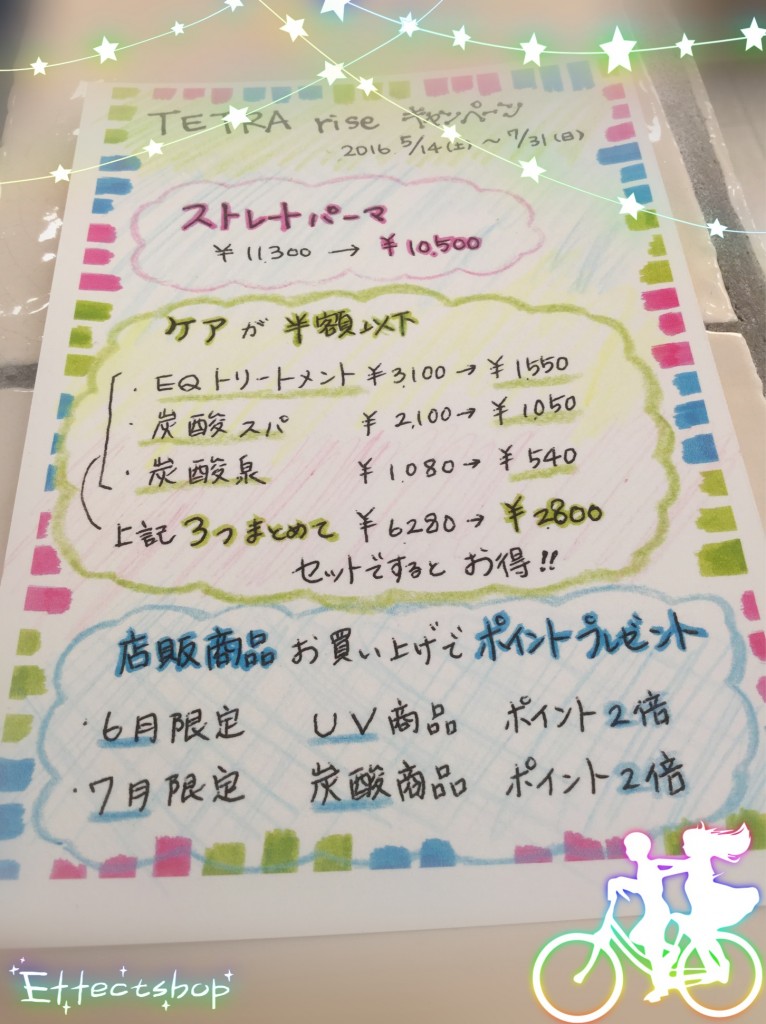 TETRA rise キャンペーン
2016 5/14(土)～7/31(日)
ストレートパーマ
¥11,300→¥10,500
ケアが半額以下
・EQトリートメント ¥3,100→¥1550
・炭酸スパ ¥2,100→¥1,050
・炭酸泉 ¥1080→¥540
上記3つまとめて ¥6280→¥2800
セットでするとお得!!
店販商品お買い上げでポイントプレゼント
・6月限定 UV商品 ポイント2倍
・7月限定 炭酸商品 ポイント2倍
Effectshop